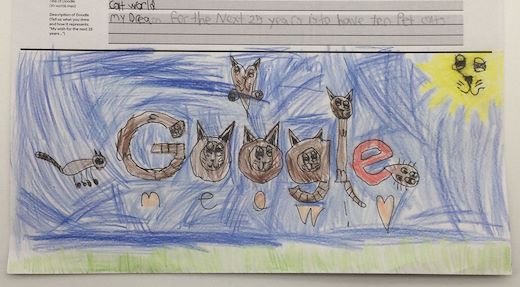 Cat world
(20 words max)
Description of Doodle
(Tell us what you drew
and how it represents
"My wish for the next 25
years ...")
My Dream for the Next 25 years is to have ten Pet cats
Google
meow